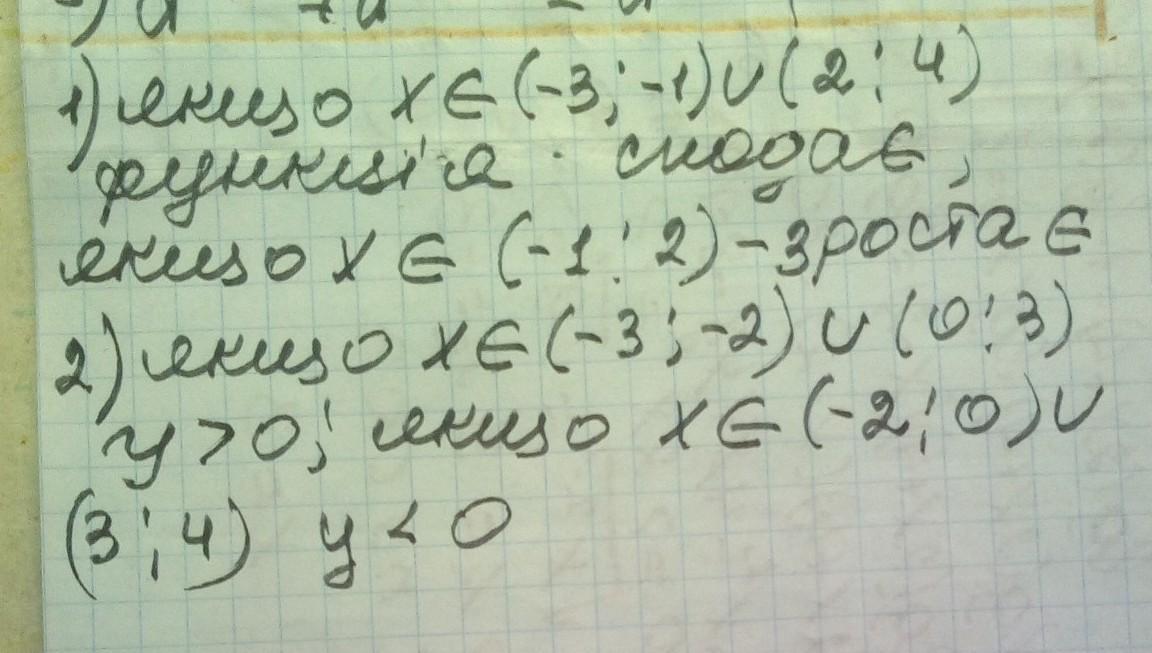 1) якщо x ∈ (-3; -1) ∪ (2; 4)
функція спадає,
якщо x ∈ (-1; 2) - зростає
2) якщо x ∈ (-3; -2) ∪ (0; 3)
y > 0; якщо x ∈ (-2; 0) ∪
(3; 4) y < 0